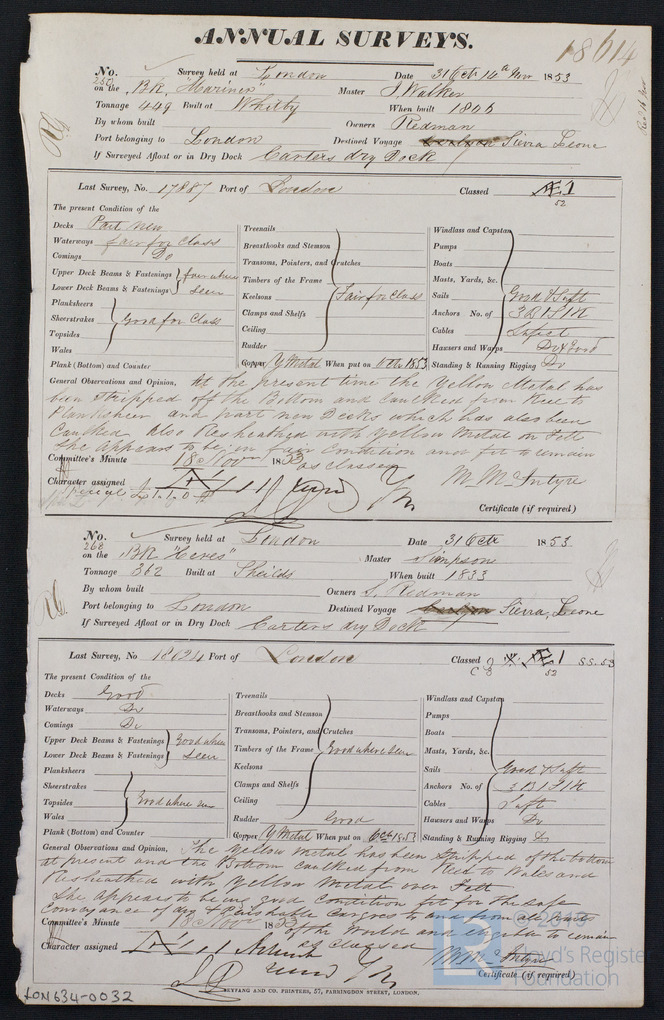 ANNUAL SURVEYS.
18614
No. 250 Survey held at London Date 31 Octr 14th Nov 1853
on the Bk. "Mariner" Master J Walker
Tonnage 449 Built at Whitby When built
By whom built Owners Redman
Port belonging to London Destined Voyage Sierra Leone
If Surveyed Afloat or in Dry Dock Carters dry Dock
Last Survey, No. 17887 Port of London Classed Æ 1
52
The present Condition of the
Decks Part New
Waterways fair for Class
Comings Do
Upper Deck Beams & Fastenings fair where
Lower Deck Beams & Fastenings seen
Planksheers
Sheerstrakes Good for Class
Topsides
Wales
Plank (Bottom) and Counter
Treenails
Breasthooks and Stemson
Transoms, Pointers, and Crutches
Timbers of the Frame
Keelsons Fair for Class
Clamps and Shelfs
Ceiling
Rudder
Copper Y Metal When put on 1853
Windlass and Capstan
Pumps
Boats
Masts, Yards, &c.
Sails Good & Suft
Anchors No. of 3 B 1 S 1 K
Cables Sufict
Hawsers and Warps Do & Good
Standing & Running Rigging Do
General Observations and Opinion, At the present time the Yellow Metal has
been stripped off the Bottom and Caulked from Keel to
Planksheer and part new Decks which has also been
Caulked Also Resheathed with Yellow Metal on Felt
She Appears to be in fair Condition and fit to remain
as classed
Committee's Minute 18 Nov 1853
Character assigned M McIntyre
Certificate (if required)
No. 268 Survey held at London Date 31 Octr 1853.
on the Bk "Ceres" Master Simpson
Tonnage 362 Built at Sheilds When built 1833
By whom built Owners S. Redman
Port belonging to London Destined Voyage Sierra, Leone
If Surveyed Afloat or in Dry Dock Carters dry Dock
Last Survey, No 18024 Port of London Classed Æ 1 SS. 53
52
The present Condition of the
Decks Good
Waterways Do
Comings Do
Upper Deck Beams & Fastenings Good where
Lower Deck Beams & Fastenings seen
Planksheers
Sheerstrakes
Topsides Good where seen
Wales
Plank (Bottom) and Counter
Treenails
Breasthooks and Stemson
Transoms, Pointers, and Crutches
Timbers of the Frame Good where seen
Keelsons
Clamps and Shelfs
Ceiling
Rudder Good
Copper Y Metal When put on Oct 1853
Windlass and Capstan
Pumps
Boats
Masts, Yards, &c.
Sails Good & Suft
Anchors No. of 3 B 1 S 1 K
Cables Suft
Hawsers and Warps Do
Standing & Running Rigging Do
General Observations and Opinion, The Yellow Metal has been stripped of the bottom
at present and the Bottom caulked from Keel to Wales and
Resheathed with Yellow Metal over Felt
She Appears to be in good Condition fit for the safe
Conveyance of dry & Perishable Cargoes to and from all parts
of the World and eligible to remain
as Classed
Committee's Minute 18 Nov 1853
Character assigned M McIntyre
Certificate (if required)
SEYFANG AND CO. PRINTERS, 57, FARRINGDON STREET, LONDON.
LON634-0032
Lloyd's Register
Foundation